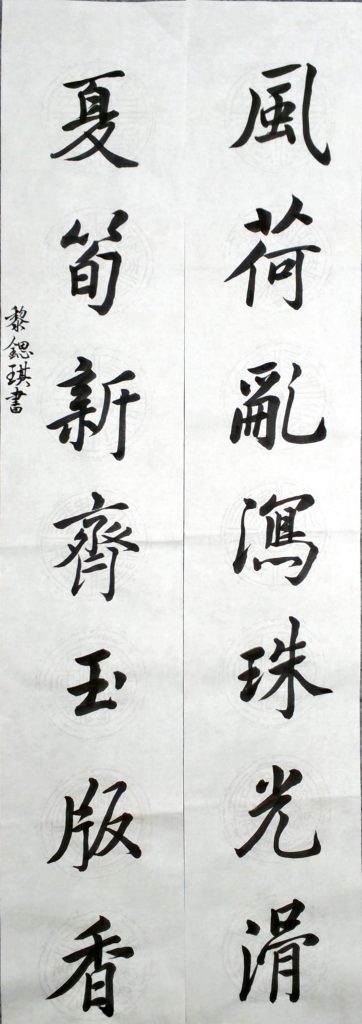 風荷亂瀉珠光滑
夏筍新齊玉版香
黎鍶琪書